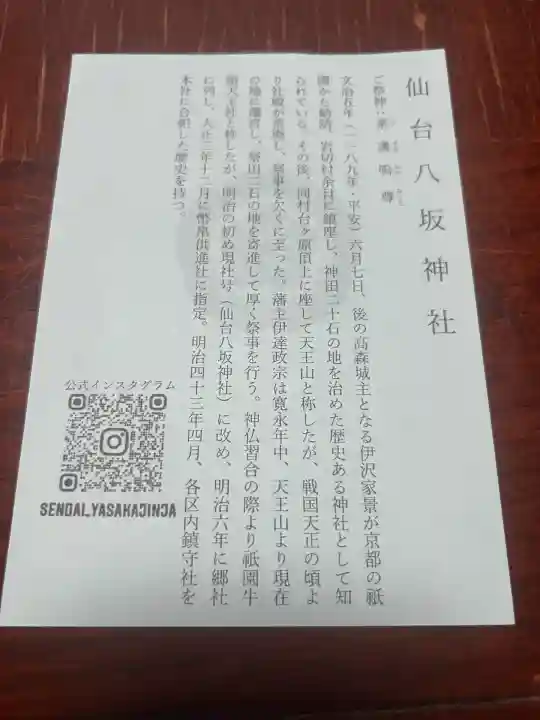 仙台八坂神社
ご祭神：素戔嗚尊
文治五年（一一八九年・平安）六月七日、後の高森城主となる伊沢家景が京都の祇
園から勧請、岩切村余目に鎮座し、神田二十石の地を治めた歴史ある神社として知
られている。その後、同村台ヶ原頂上に座して天王山と称したが、戦国天正の頃よ
り社殿が荒廃し、祭事を欠くに至った。藩主伊達政宗は寛永年中、天王山より現在
の地に遷宮し、祭田二石の地を寄進して厚く祭事を行う。神仏習合の際より祇園牛
頭天王社と称したが、明治の初め現社号（仙台八坂神社）に改め、明治六年に郷社
に列し、大正三年十二月に幣帛供進社に指定。明治四十三年四月、各区内鎮守社を
本社に合祀した歴史を持つ。
公式インスタグラム
SENDAI_YASAKAJINJA